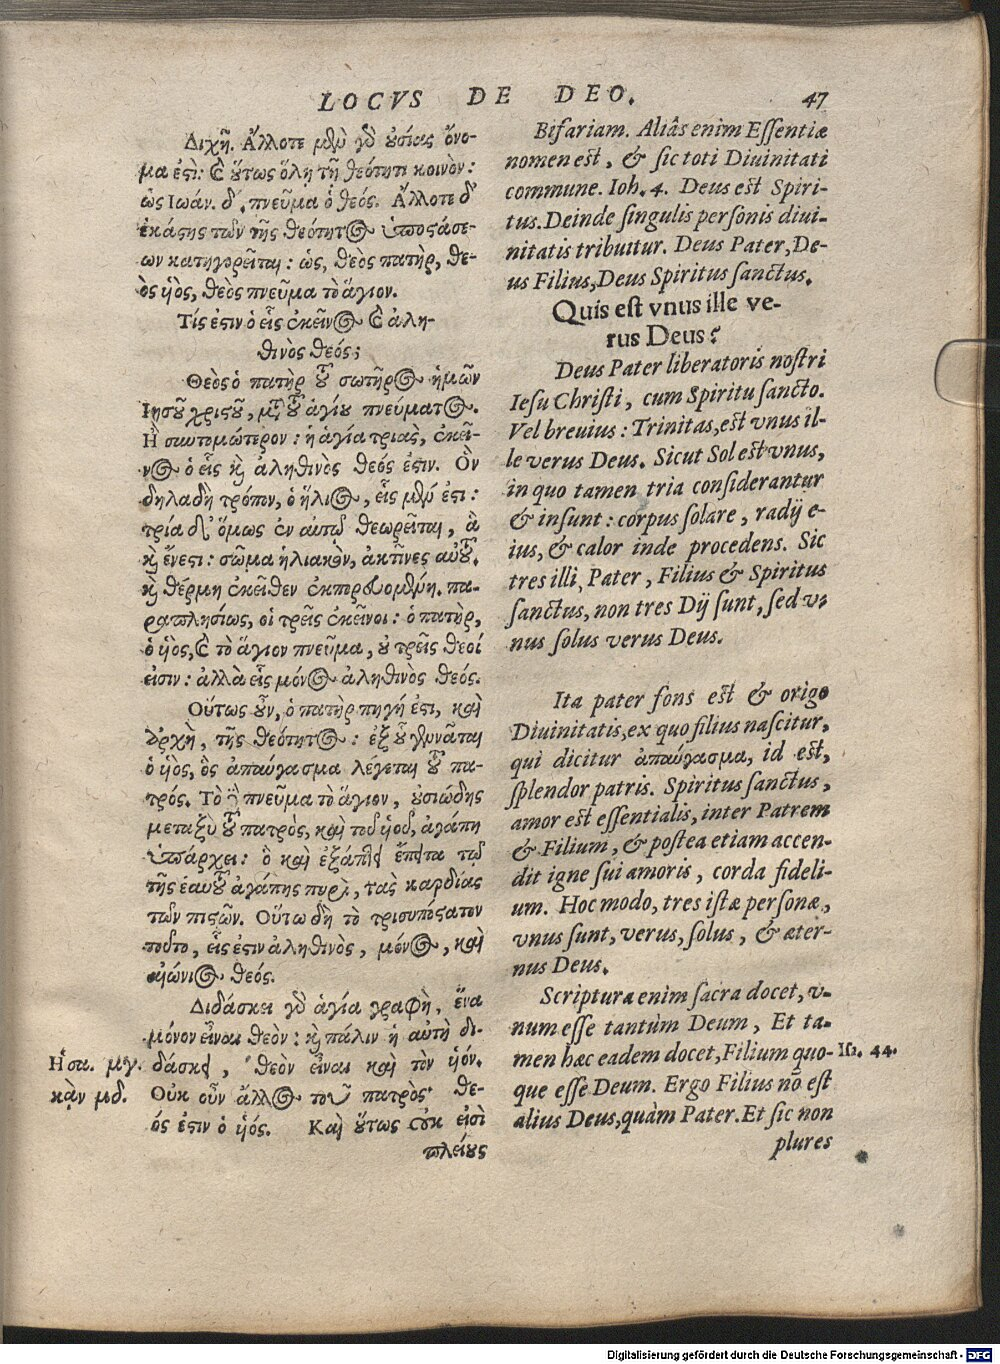 LOCVS DE DEO.
47
Διχῆ. Ἄλλοτε μὲν γὸ οὐσίας ὄνο-
μα ἐστὶ: καὶ οὕτως ὅλῃ τῇ θεότητι κοινὸν:
ὡς Ἰωάν. δ. πνεῦμα ὁ θεός. Ἄλλοτε δ'
ἑκάστης τῶν τῆς θεότητος ὑποστάσε-
ων κατηγορεῖται: ὡς, θεὸς πατὴρ, θε-
ὸς υἱὸς, θεὸς πνεῦμα τὸ ἅγιον.
Τίς ἐστιν ὁ εἷς ἐκεῖνος καὶ ἀλη-
θινὸς θεός;
Θεὸς ὁ πατὴρ τοῦ σωτῆρος ἡμῶν
Ἰησοῦ χριστοῦ, μετὰ τοῦ ἁγίου πνεύματος.
Ἢ συντομώτερον: ἡ ἁγία τριὰς, ἐκεῖ-
νος ὁ εἷς καὶ ἀληθινὸς θεός ἐστιν. Ὃν
δηλαδὴ τρόπον, ὁ ἥλιος, εἷς μέν ἐστι:
τρία δ' ὅμως ἐν αὐτῷ θεωρεῖται, ἃ
καὶ ἔνεστι: σῶμα ἡλιακὸν, ἀκτῖνες αὐτοῦ,
καὶ θέρμη ἐκεῖθεν ἐκπορευομένη. πα-
ραπλησίως, οἱ τρεῖς ἐκεῖνοι: ὁ πατὴρ,
ὁ υἱὸς, καὶ τὸ ἅγιον πνεῦμα, οὐ τρεῖς θεοί
εἰσιν: ἀλλὰ εἷς μόνος ἀληθινὸς θεός.
Οὕτως οὖν, ὁ πατὴρ πηγή ἐστι, καὶ
ἀρχὴ, τῆς θεότητος: ἐξ οὗ γεννᾶται
ὁ υἱὸς, ὃς ἀπαύγασμα λέγεται τοῦ πα-
τρός. Τὸ δὲ πνεῦμα τὸ ἅγιον, οὐσιώδης
μεταξὺ τοῦ πατρὸς, καὶ τοῦ υἱοῦ, ἀγάπη
ὑπάρχει: ὃ καὶ ἐξάπτει ἔπειτα τῷ
τῆς ἑαυτοῦ ἀγάπης πυρὶ, τὰς καρδίας
τῶν πιστῶν. Οὕτω δὴ τὸ τρισυπόστατον
τοῦτο, εἷς ἐστιν ἀληθινὸς, μόνος, καὶ
αἰώνιος θεός.
Διδάσκει γὸ ἁγία γραφὴ, ἕνα
μόνον εἶναι θεὸν: καὶ πάλιν ἡ αὐτὴ δι-
δάσκει, θεὸν εἶναι καὶ τὸν υἱόν.
Οὐκ οὖν ἄλλος τοῦ πατρὸς θε-
ός ἐστιν ὁ υἱός. Καὶ οὕτως οὐκ εἰσὶ
πλείους
Ἠσα. μγ.
κᾳν μδ.
Bifariam. Aliâs enim Essentiæ
nomen est, & sic toti Diuinitati
commune. Ioh. 4. Deus est Spiri-
tus. Deinde singulis personis diui-
nitatis tribuitur. Deus Pater, De-
us Filius, Deus Spiritus sanctus.
Quis est vnus ille ve-
rus Deus?
Deus Pater liberatoris nostri
Iesu Christi, cum Spiritu sancto.
Vel breuius: Trinitas, est vnus il-
le verus Deus. Sicut Sol est vnus,
in quo tamen tria considerantur
& insunt: corpus solare, radij e-
ius, & calor inde procedens. Sic
tres illi, Pater, Filius & Spiritus
sanctus, non tres Dij sunt, sed v-
nus solus verus Deus.
Ita pater fons est & origo
Diuinitatis, ex quo filius nascitur,
qui dicitur ἀπαύγασμα, id est,
splendor patris. Spiritus sanctus,
amor est essentialis, inter Patrem
& Filium, & postea etiam accen-
dit igne sui amoris, corda fideli-
um. Hoc modo, tres istæ personæ,
vnus sunt, verus, solus, & æter-
nus Deus.
Scriptura enim sacra docet, v-
num esse tantùm Deum, Et ta-
men hæc eadem docet, Filium quo-
que esse Deum. Ergo Filius nō est
alius Deus, quàm Pater. Et sic non
plures
Isa. 44.
Digitalisierung gefördert durch die Deutsche Forschungsgemeinschaft - DFG